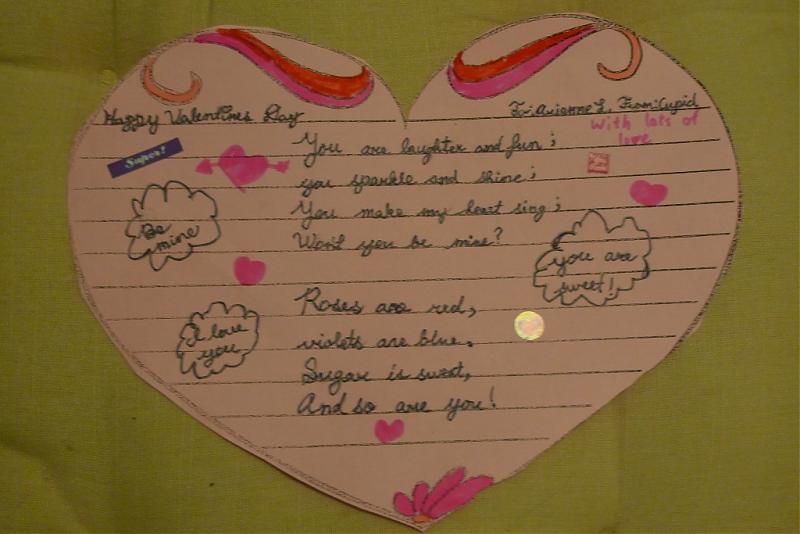 Happy Valentines Day
To: Arianne L. From: Cupid
With lots of
love
Super!
You are laughter and fun;
you sparkle and shine;
You make my heart sing;
Won't you be mine?
Be
mine
You are
sweet!
I love
you
Roses are red,
violets are blue,
Sugar is sweet,
And so are you!